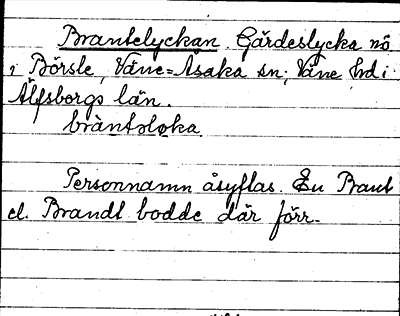 Brantelyckan. Gärdeslycka nö
i Börsle, Väne=Åsaka sn; Väne hd i
Älfsborgs län.
bràntəløka.
Personnamn åsyftas. En Brant
el. Brandt bodde där förr.